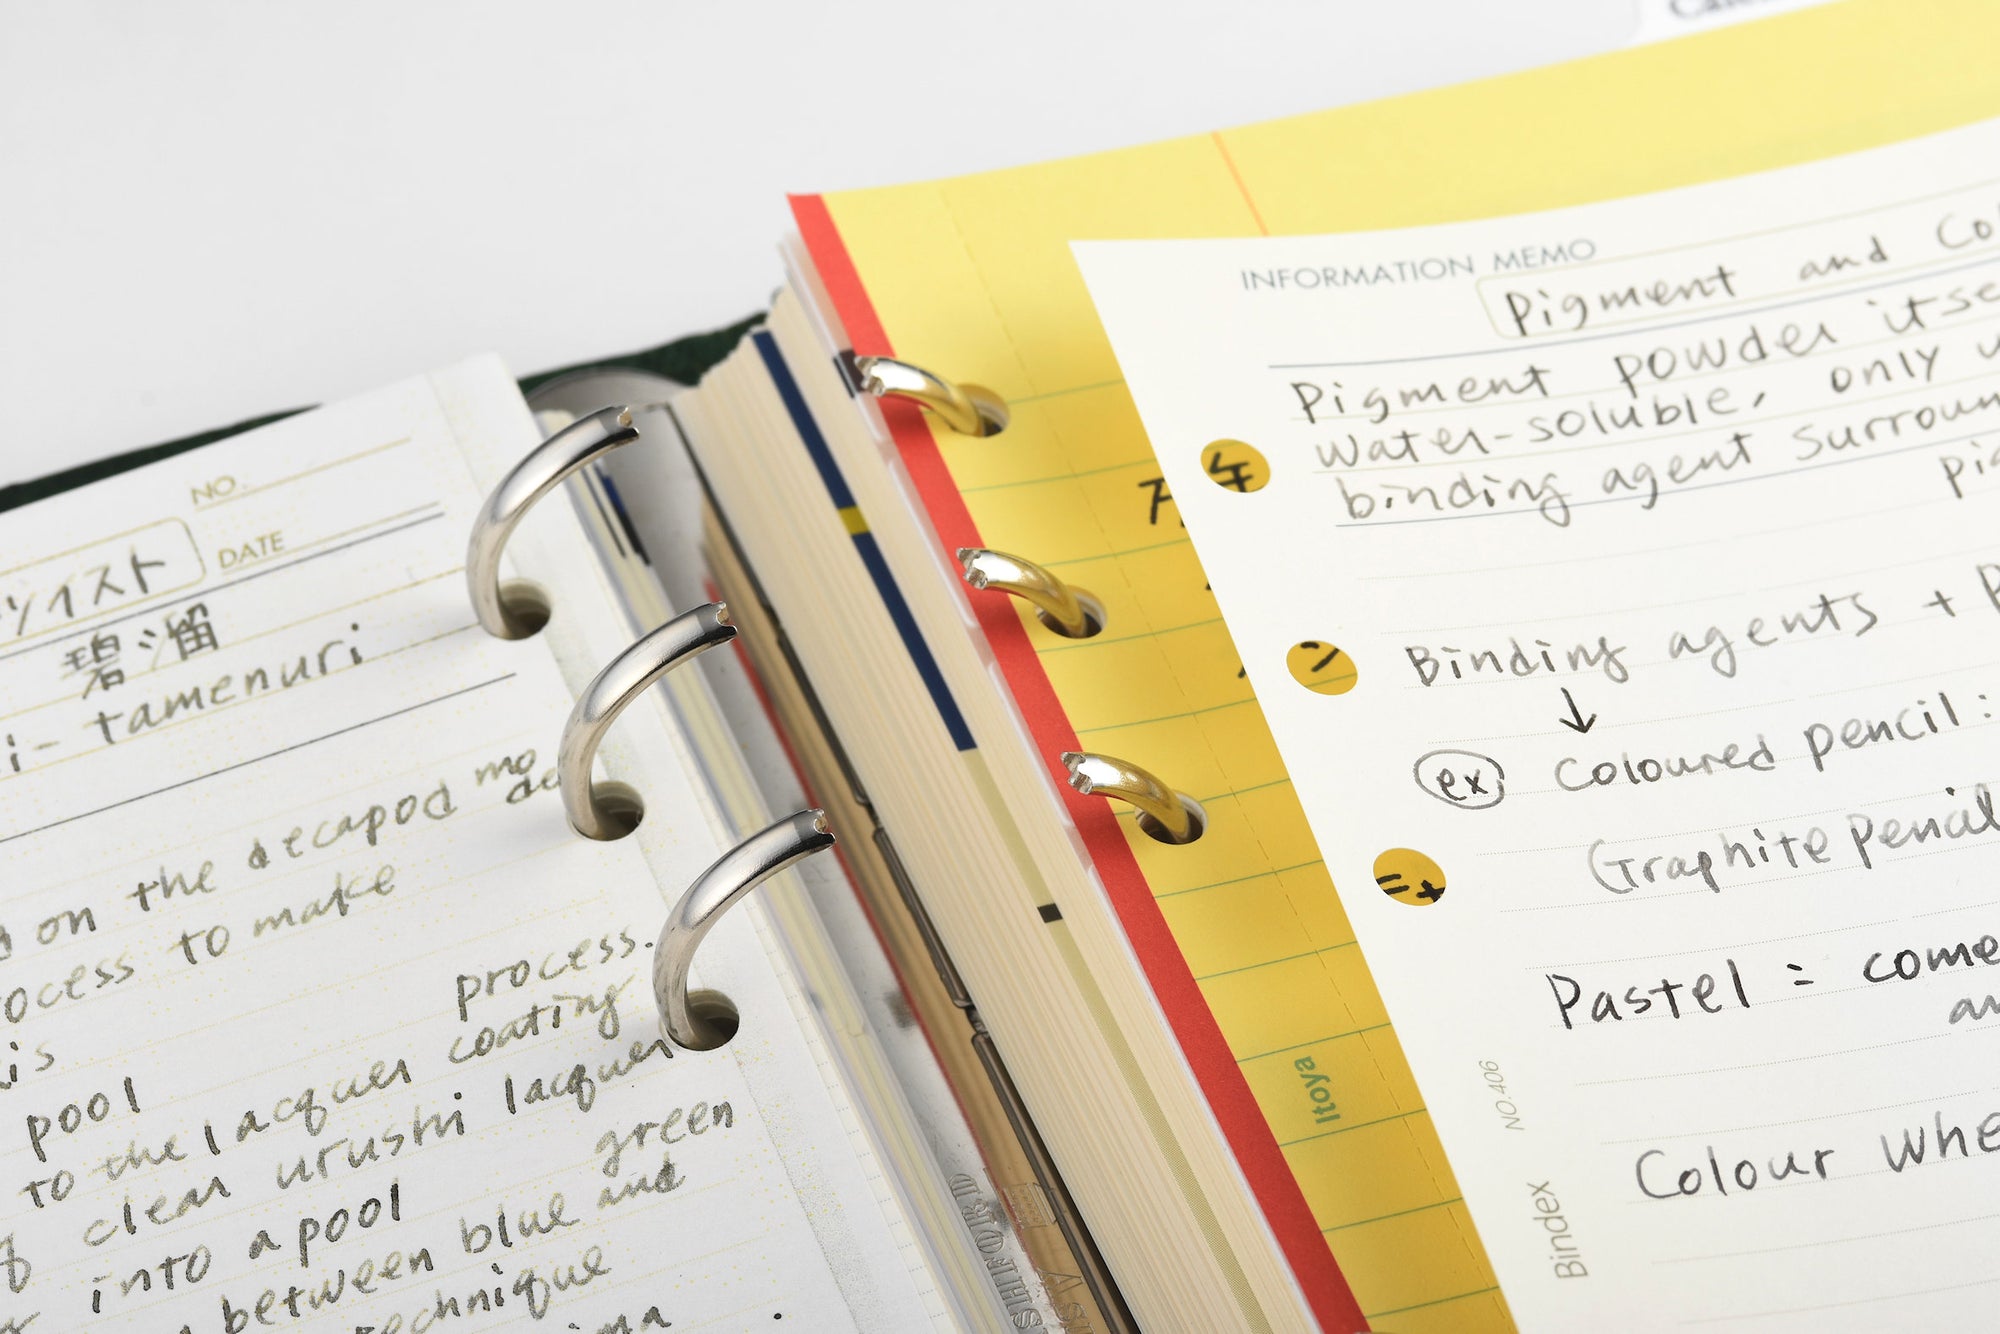 NO.
DATE
ツイスト
碧溜
i-tamenuri
on the decapod mo
de
ocess to make
process.
is
pool
coating
to the lacquer
clear urushi lacquer
into a pool
green
between blue and
technique
INFORMATION MEMO
Pigment and Co
Pigment powder itse
water-soluble, only
binding agent surroun
Binding agents +
↓
ex Coloured pencil:
Graphite pencil
Pastel = come
an
Colour whe
Itoya
Bindex NO.406
ASHFORD